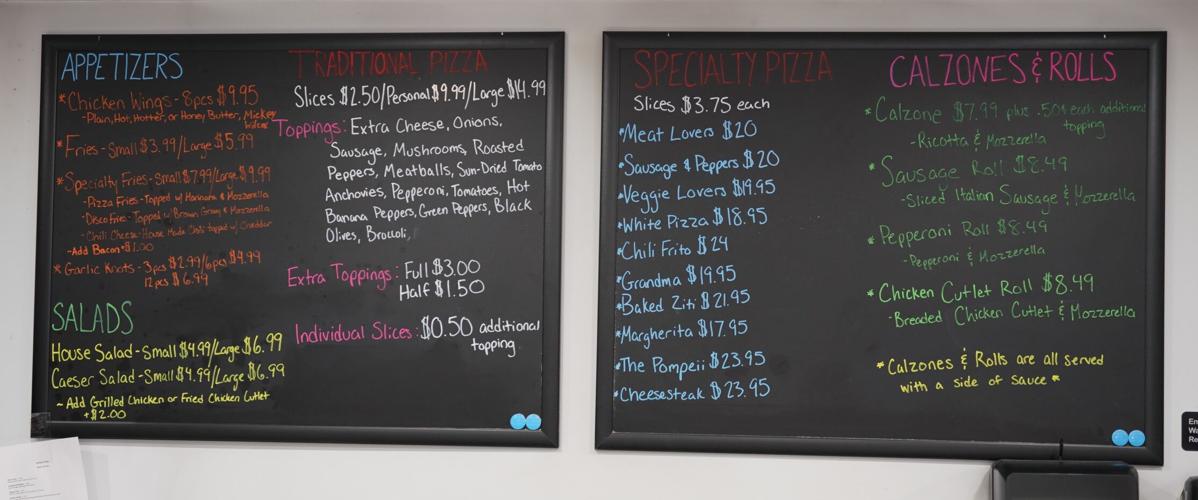 APPETIZERS
*Chicken Wings - 8pcs $9.95
-Plain, Hot, Hotter, or Honey Butter, Mickey
*Fries - Small $3.99/Large $5.99
*Specialty Fries - Small $7.99/Large $9.99
-Pizza Fries - Topped w/ Marinara & Mozzarella
-Disco Fries - Topped w/ Brown Gravy & Mozzarella
-Chili Cheese - House Made Chili topped w/ Cheddar
-Add Bacon +$1.00
*Garlic Knots - 3pcs $2.99/6pcs $4.99
12pcs $6.99
SALADS
House Salad - Small $4.99/Large $6.99
Caeser Salad - Small $4.99/Large $6.99
~ Add Grilled Chicken or Fried Chicken Cutlet
+$2.00
TRADITIONAL PIZZA
Slices $2.50/Personal $9.99/Large $14.99
Toppings: Extra Cheese, Onions,
Sausage, Mushrooms, Roasted
Peppers, Meatballs, Sun-Dried Tomato
Anchovies, Pepperoni, Tomatoes, Hot
Banana Peppers, Green Peppers, Black
Olives, Broccoli,
Extra Toppings: Full $3.00
Half $1.50
Individual Slices: $0.50 additional
topping
SPECIALTY PIZZA
Slices $3.75 each
*Meat Lovers $20
*Sausage & Peppers $20
*Veggie Lovers $19.95
*White Pizza $18.95
*Chili Frito $24
*Grandma $19.95
*Baked Ziti $21.95
*Margherita $17.95
*The Pompeii $23.95
*Cheesesteak $23.95
CALZONES & ROLLS
*Calzone $7.99 plus .50¢ each additional
topping
-Ricotta & Mozzarella
*Sausage Roll $8.49
-Sliced Italian Sausage & Mozzarella
*Pepperoni Roll $8.49
-Pepperoni & Mozzarella
*Chicken Cutlet Roll $8.49
-Breaded Chicken Cutlet & Mozzarella
*Calzones & Rolls are all served
with a side of sauce*